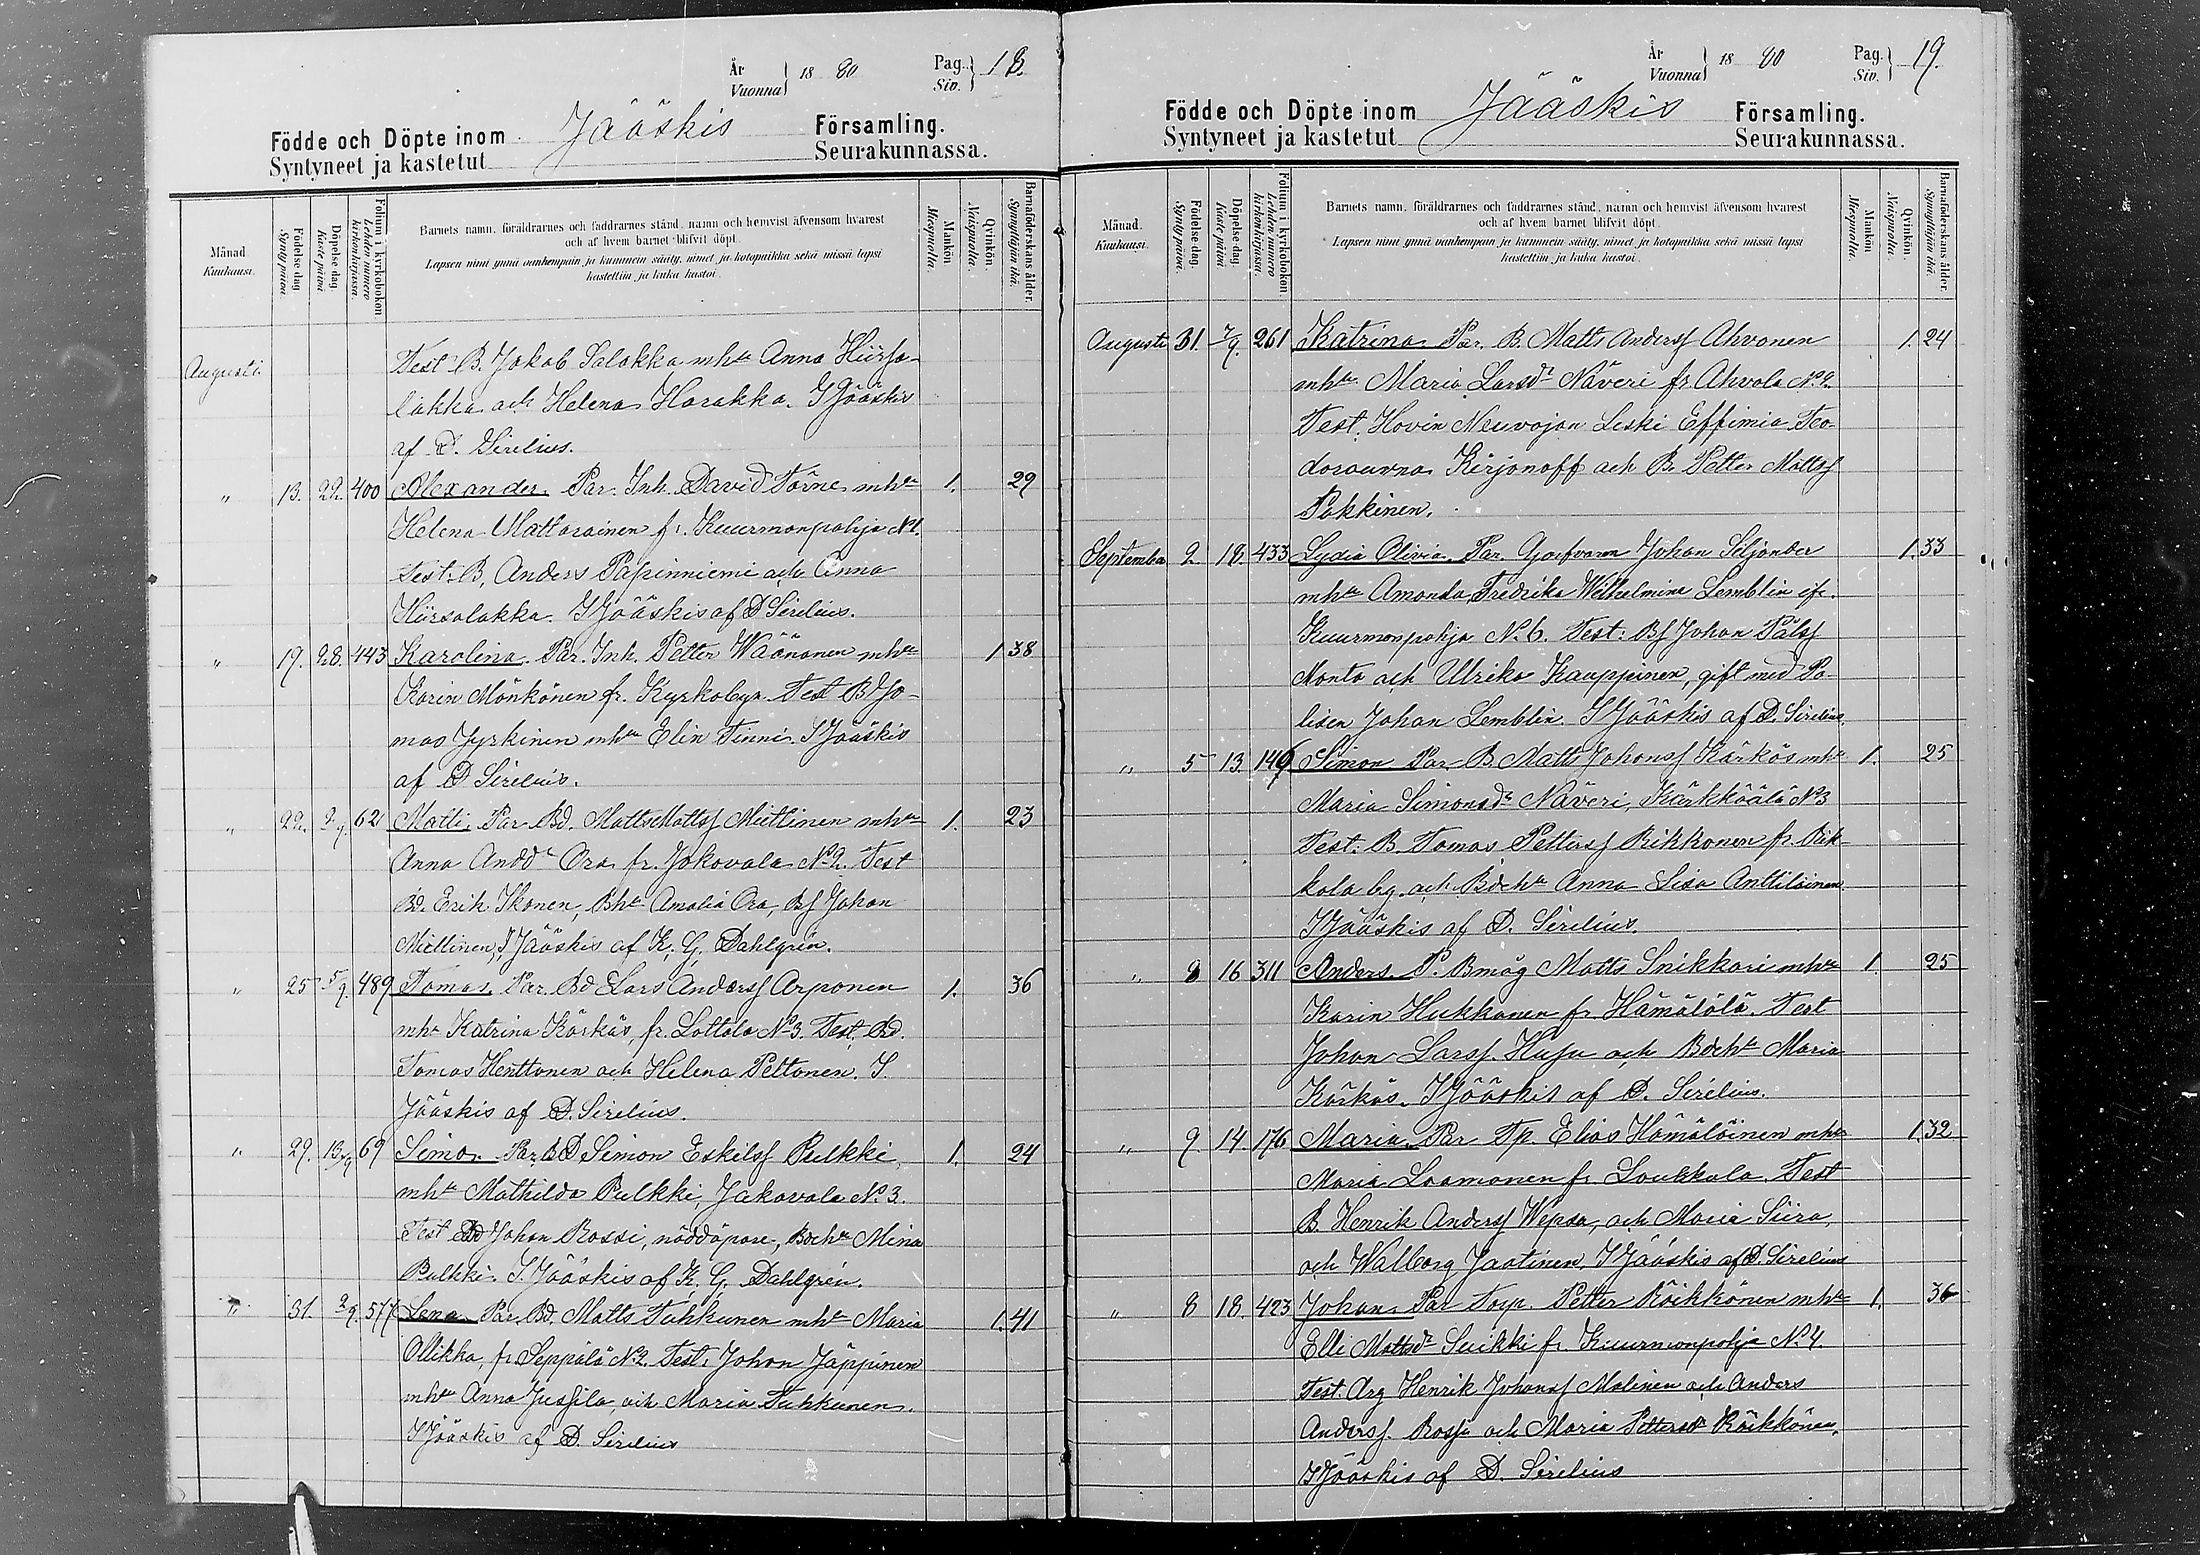 År
Vuonna
18 80
Pag.
Siv.
18.
Födde och Döpte inom
Syntyneet ja kastetut
Jääskis
Församling.
Seurakunnassa.
Månad.
Kuukausi.
Födelse dag.
Synty päivä.
Döpelse dag.
Kaste päivä
Folium i kyrkoboken
Lehden numero kirkonkirjassa.
Barnets namn, föräldrarnes och faddrarnes stånd, namn och hemvist äfvensom hvarest
och af hvem barnet blifvit döpt.
Lapsen nimi ynnä vanhempain ja kummein sääty, nimet ja kotopaikka sekä missä lapsi
kastettiin ja kuka kastoi.
Mankön
Miespuolia.
Qvinkön.
Naispuolia.
Barnaföderskans ålder.
Synnyttäjän ikä.
Augusti
Test B. Jakob Salakka mhu Anna Hiirsa-
lakka och Helena Harakka. I Jääskis
af D. Sirelius.
" 13. 22. 400 Alexander. Par. Inh. David Törne mhu 1. 29
Helena Mattarainen fr. Kuurmanpohja N1.
Test: B. Anders Papinniemi och Anna
Hiirsalakka. I Jääskis af D Sirelius.
" 19. 28. 443 Karolina. Par. Inh. Petter Wäänänen mhu 1 38
Karin Mönkönen fr. Kyrkobyn. Test Bd To-
mas Jyrkinen mhu Elin Tinni. I Jääskis
af D Sirelius.
" 22. 2/9. 621 Matti. Par. Bd. Matts Mattsf Miettinen mhu 1. 23
Anna Andd Ora fr. Jakovala No 2. Test
Bd. Erik Ikonen, Bhu Amalia Ora, Bf Johan
Miettinen, I Jääskis af K. G. Dahlgrén.
" 25 5/9. 489 Tomas. Par. Bd Lars Andersf Arponen 1. 36
mhu Katrina Kärkäs, fr. Lottola No 3. Test. Bd.
Tomas Henttonen och Helena Peltonen. I.
Jääskis af D. Sirelius.
" 29. 13/9 69 Simon Par. BD Simon Eskilsf Pulkki, 1. 24
mhu Mathilda Pulkki, Jakovala No 3.
Test Bd Johan Rossi, nöddöpare, Bdchu Mina
Pulkki. I. Jääskis af K. G. Dahlgrén.
" 31. 2/9. 577 Lena Par. Bd. Matts Tuhkunen mhu Maria 1. 41
Ollikka, fr. Seppälä No 2. Test: Johan Jäppinen
mhu Anna Jussila, och Maria Tuhkunen.
I Jääskis af D. Sirelius
År
Vuonna
18 80
Pag.
Siv.
19.
Födde och Döpte inom
Syntyneet ja kastetut
Jääskis
Församling.
Seurakunnassa.
Månad.
Kuukausi.
Födelse dag.
Synty päivä.
Döpelse dag.
Kaste päivä
Folium i kyrkoboken.
Lehden numero kirkonkirjassa.
Barnets namn, föräldrarnes och faddrarnes stånd, namn och hemvist äfvensom hvarest
och af hvem barnet blifvit döpt.
Lapsen nimi ynnä vanhempain ja kummein sääty, nimet ja kotopaikka sekä missä lapsi
kastettiin ja kuka kastoi.
Mankön.
Miespuolia.
Qvinkön.
Naispuolia.
Barnaföderskans ålder.
Synnyttäjän ikä.
Augusti 31. 7/9. 261 Katrina Par. B. Matts Andersf Ahvonen 1. 24
mhu Maria Larsdr Näveri fr Ahvola No 2.
Test. Hovin Neuvojan Leski Effimia Teo-
dorauvna Kirjanoff och B. Petter Mattsf
Pakkinen.
September 2. 18. 433 Lydia Olivia. Par. Garfvaren Johan Siljander 1. 33
mhu Amanda Fredrika Wilhelmina Lemblin ifr.
Kuurmanpohja No 6. Test: Bf Johan Pålsf
Monto och Ulrika Kauppinen, gift med Po-
lisen Johan Lemblin. I Jääskis af D. Sirelius.
" 5 13. 149 Simon Par. B. Matts Johansf Kärkäs mhu 1. 25
Maria Simonsdr Näveri, Kärkkäälä No 3
Test: B. Tomas Pettersf Rikkonen fr. Rik-
kola by, och Bdchu Anna Lisa Anttilainen
I Jääskis af D. Sirelius.
" 8 16 311 Anders. P. Bmåg Matts Snikkari mhu 1. 25
Karin Hukkanen fr. Hämälälä. Test
Johan Larsf. Huju och Bdchu Maria
Kärkäs. I Jääskis af D. Sirelius.
" 9. 14. 176 Maria. Par Tp. Elias Hämäläinen mhu 1. 32
Maria Laamanen fr Laukkala. Test
B. Henrik Andersf Wepsä, och Maria Siira,
och Walborg Jaatinen. I Jääskis af D. Sirelius
" 8 18. 423 Johan. Par Torp. Petter Räikkönen mhu 1. 36
Elli Mattsdr Suikki fr Kuurmanpohja No 4.
Test. Arg Henrik Johansf Malinen och Anders
Andersf. Rossi och Maria Pettersdr Räikkönen.
I Jääskis af D. Sirelius